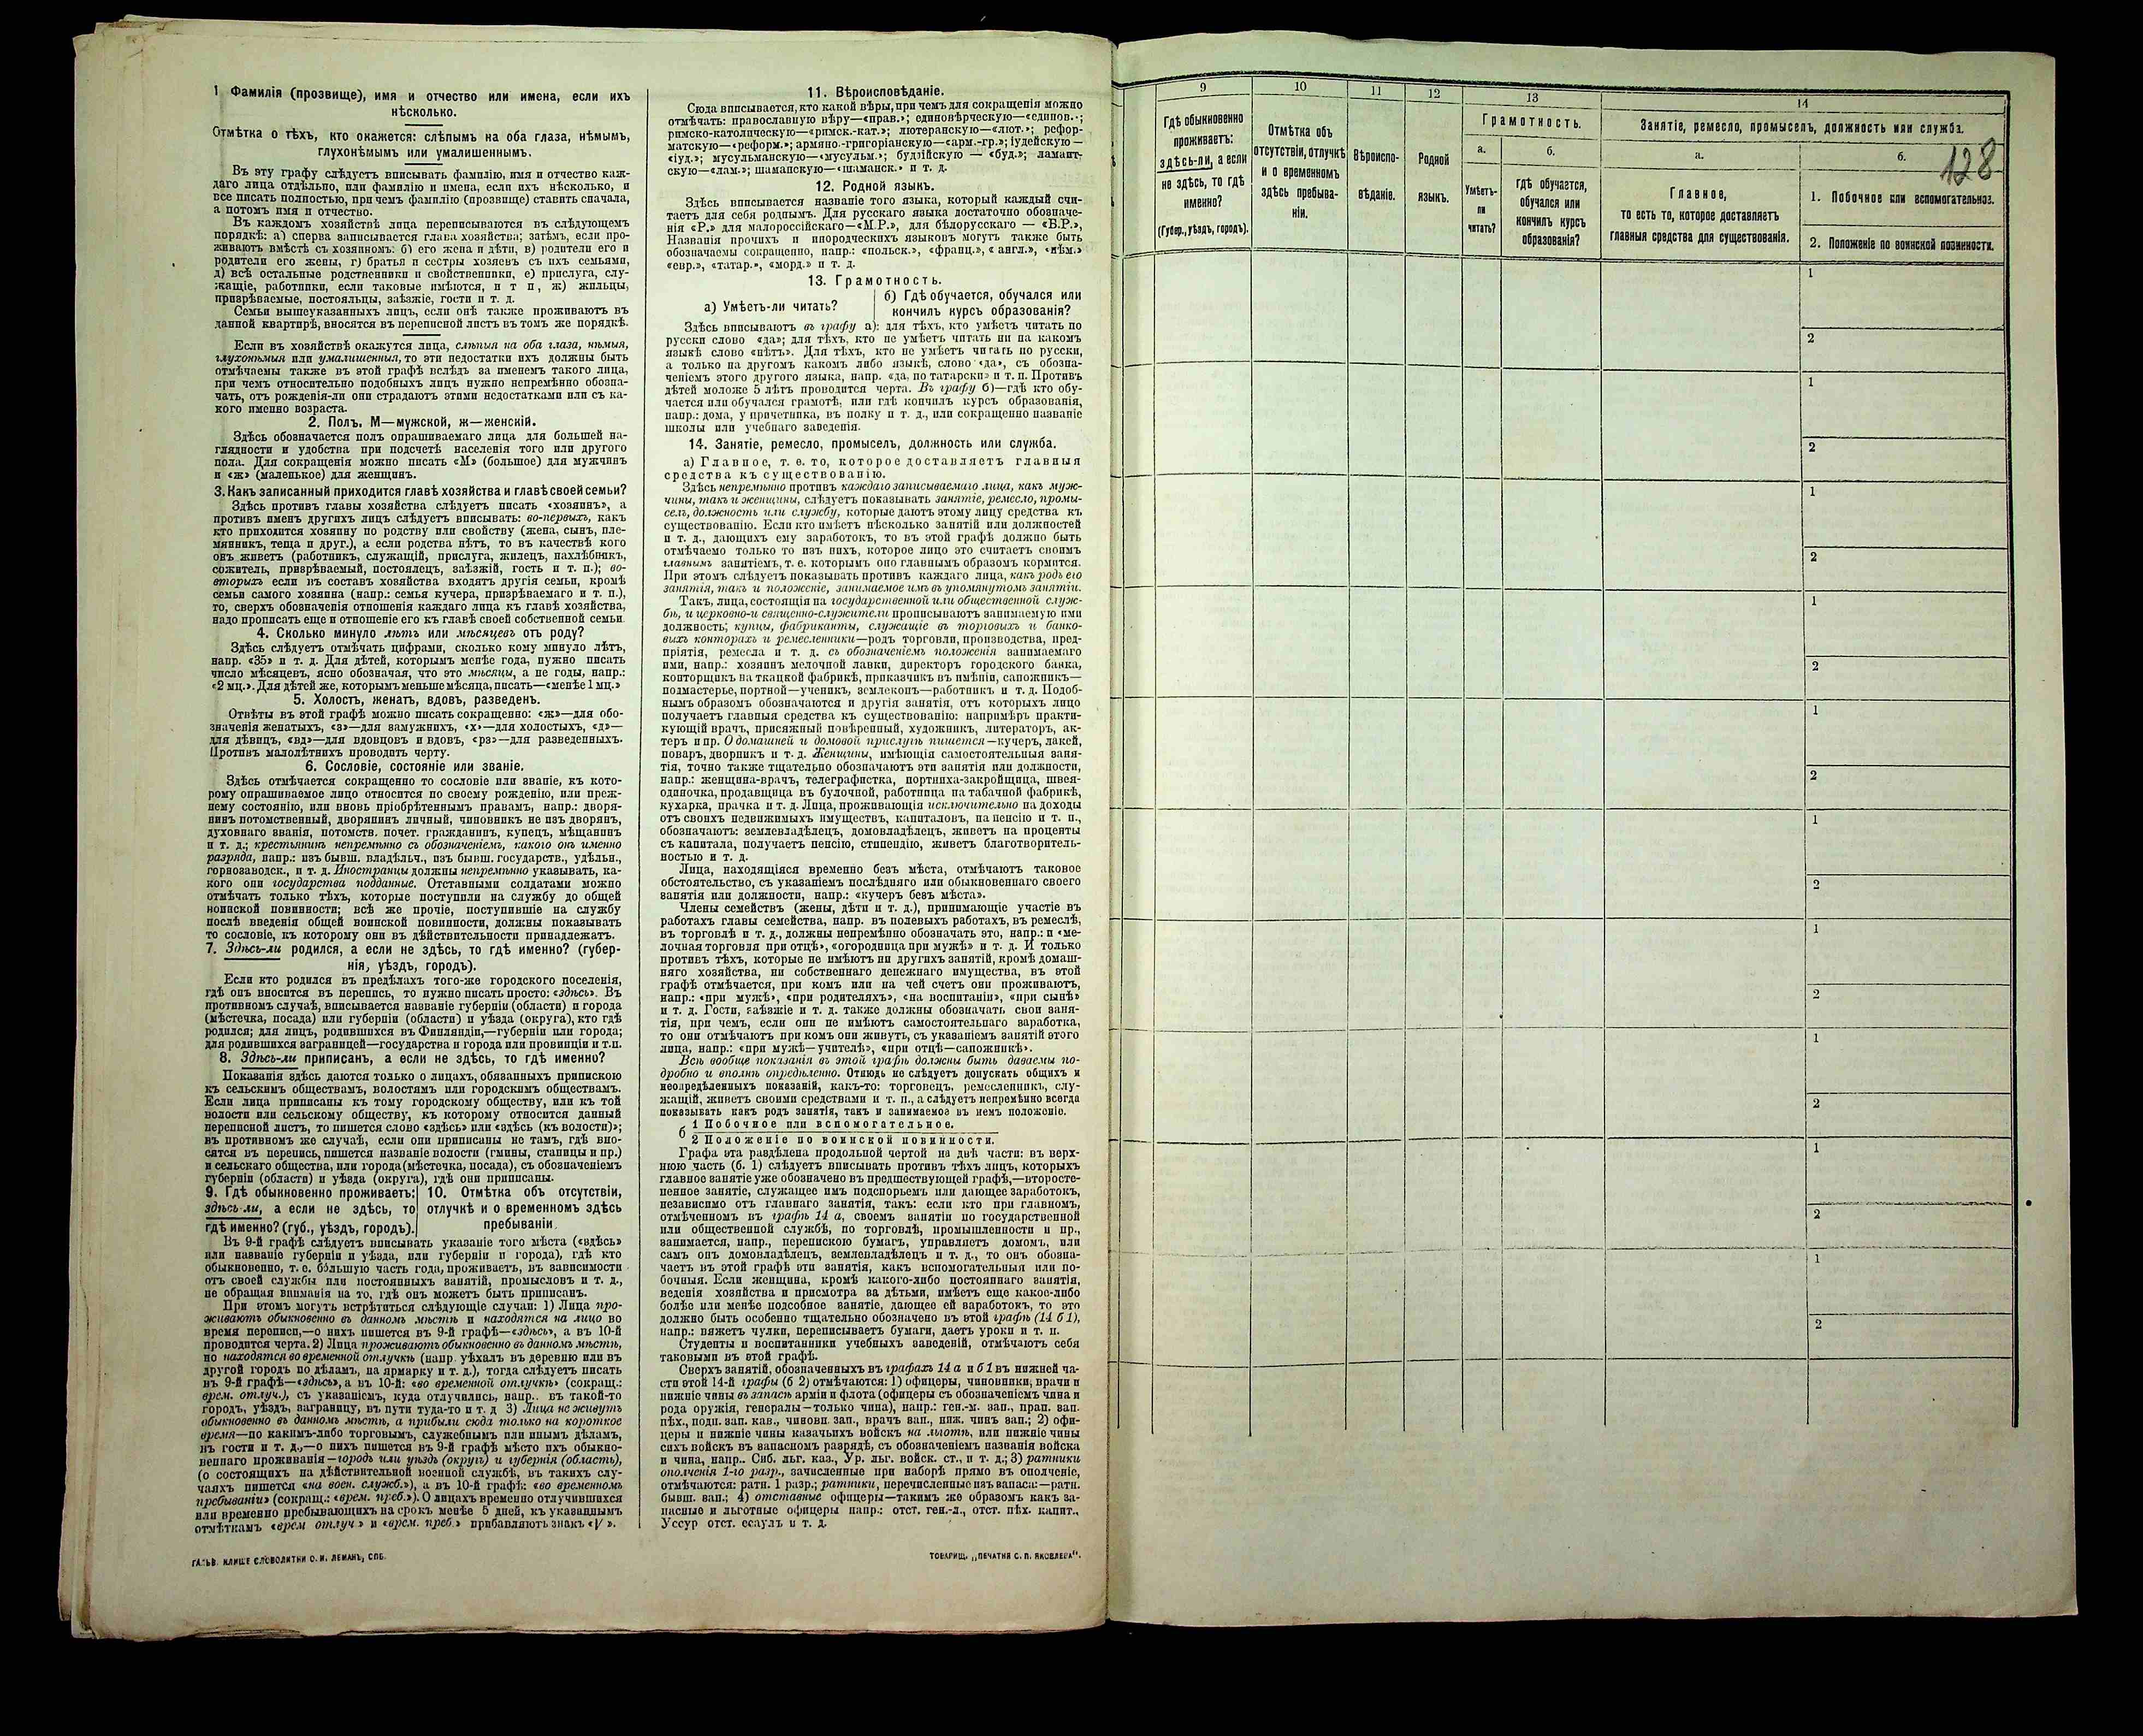 1 Фамилія (прозвище), имя и отчество или имена, если ихъ
нѣсколько.
Отмѣтка о тѣхъ, кто окажется: слѣпымъ на оба глаза, нѣмымъ,
глухонѣмымъ или умалишеннымъ.
Въ эту графу слѣдуетъ вписывать фамилію, имя и отчество каж-
даго лица отдѣльно, или фамилію и имена, если ихъ нѣсколько, и
все писать полностью, при чемъ фамилію (прозвище) ставить сначала,
а потомъ имя и отчество.
Въ каждомъ хозяйствѣ лица переписываются въ слѣдующемъ
порядкѣ: а) сперва записывается глава хозяйства; затѣмъ, если про-
живаютъ вмѣстѣ съ хозяиномъ: б) его жена и дѣти, в) родители его и
родители его жены, г) братья и сестры хозяевъ съ ихъ семьями,
д) всѣ остальные родственники и свойственники, е) прислуга, слу-
жащіе, работники, если таковые имѣются, и т п, ж) жильцы,
призрѣваемые, постояльцы, заѣзжіе, гости и т. д.
Семьи вышеуказанныхъ лицъ, если онѣ также проживаютъ въ
данной квартирѣ, вносятся въ переписной листъ въ томъ же порядкѣ.
Если въ хозяйствѣ окажутся лица, слѣпыя на оба глаза, нѣмыя,
глухонѣмыя или умалишенныя, то эти недостатки ихъ должны быть
отмѣчаемы также въ этой графѣ вслѣдъ за именемъ такого лица,
при чемъ относительно подобныхъ лицъ нужно непремѣнно обозна-
чать, отъ рожденія-ли они страдаютъ этими недостатками или съ ка-
кого именно возраста.
2. Полъ. М—мужской, ж—женскій.
Здѣсь обозначается полъ опрашиваемаго лица для большей на-
глядности и удобства при подсчетѣ населенія того или другого
пола. Для сокращенія можно писать «М» (большое) для мужчинъ
и «ж» (маленькое) для женщинъ.
3. Какъ записанный приходится главѣ хозяйства и главѣ своей семьи?
Здѣсь противъ главы хозяйства слѣдуетъ писать «хозяинъ», а
противъ именъ другихъ лицъ слѣдуетъ вписывать: во-первыхъ, какъ
кто приходится хозяину по родству или свойству (жена, сынъ, пле-
мянникъ, теща и друг.), а если родства нѣтъ, то въ качествѣ кого
онъ живетъ (работникъ, служащій, прислуга, жилецъ, нахлѣбникъ,
сожитель, призрѣваемый, постоялецъ, заѣзжій, гость и т. п.); во-
вторыхъ если въ составъ хозяйства входятъ другія семьи, кромѣ
семьи самого хозяина (напр.: семья кучера, призрѣваемаго и т. п.),
то, сверхъ обозначенія отношенія каждаго лица къ главѣ хозяйства,
надо прописать еще и отношеніе его къ главѣ своей собственной семьи.
4. Сколько минуло лѣтъ или мѣсяцевъ отъ роду?
Здѣсь слѣдуетъ отмѣчать цифрами, сколько кому минуло лѣтъ,
напр. «35» и т. д. Для дѣтей, которымъ менѣе года, нужно писать
число мѣсяцевъ, ясно обозначая, что это мѣсяцы, а не годы, напр.:
«2 мц.». Для дѣтей же, которымъ меньше мѣсяца, писать—«менѣе 1 мц.»
5. Холостъ, женатъ, вдовъ, разведенъ.
Отвѣты въ этой графѣ можно писать сокращенно: «ж»—для обо-
значенія женатыхъ, «з»—для замужнихъ, «х»—для холостыхъ, «д»—
для дѣвицъ, «вд»—для вдовцовъ и вдовъ, «рз»—для разведенныхъ.
Противъ малолѣтнихъ проводить черту.
6. Сословіе, состояніе или званіе.
Здѣсь отмѣчается сокращенно то сословіе или званіе, къ кото-
рому опрашиваемое лицо относится по своему рожденію, или преж-
нему состоянію, или вновь пріобрѣтеннымъ правамъ, напр.: дворя-
нинъ потомственный, дворянинъ личный, чиновникъ не изъ дворянъ,
духовнаго званія, потомств. почет. гражданинъ, купецъ, мѣщанинъ
и т. д.; крестьянинъ непремѣнно съ обозначеніемъ, какого онъ именно
разряда, напр.: изъ бывш. владѣльч., изъ бывш. государств., удѣльн.,
горнозаводск., и т. д. Иностранцы должны непремѣнно указывать, ка-
кого они государства подданные. Отставными солдатами можно
отмѣчать только тѣхъ, которые поступили на службу до общей
воинской повинности; всѣ же прочіе, поступившіе на службу
послѣ введенія общей воинской повинности, должны показывать
то сословіе, къ которому они въ дѣйствительности принадлежатъ.
7. Здѣсь-ли родился, а если не здѣсь, то гдѣ именно? (губер-
нія, уѣздъ, городъ).
Если кто родился въ предѣлахъ того-же городского поселенія,
гдѣ онъ вносится въ перепись, то нужно писать просто: «здѣсь». Въ
противномъ случаѣ, вписывается названіе губерніи (области) и города
(мѣстечка, посада) или губерніи (области) и уѣзда (округа), кто гдѣ
родился; для лицъ, родившихся въ Финляндіи,—губерніи или города;
для родившихся заграницей—государства и города или провинціи и т.п.
8. Здѣсь-ли приписанъ, а если не здѣсь, то гдѣ именно?
Показанія здѣсь даются только о лицахъ, обязанныхъ припискою
къ сельскимъ обществамъ, волостямъ или городскимъ обществамъ.
Если лица приписаны къ тому городскому обществу, или къ той
волости или сельскому обществу, къ которому относится данный
переписной листъ, то пишется слово «здѣсь» или «здѣсь (къ волости)»;
въ противномъ же случаѣ, если они приписаны не тамъ, гдѣ вно-
сятся въ перепись, пишется названіе волости (гмины, станицы и пр.)
и сельскаго общества, или города (мѣстечка, посада), съ обозначеніемъ
губерніи (области) и уѣзда (округа), гдѣ они приписаны.
9. Гдѣ обыкновенно проживаетъ:
здѣсь-ли, а если не здѣсь, то
гдѣ именно? (губ., уѣздъ, городъ).
10. Отмѣтка объ отсутствіи,
отлучкѣ и о временномъ здѣсь
пребываніи.
Въ 9-й графѣ слѣдуетъ вписывать указаніе того мѣста («здѣсь»
или названіе губерніи и уѣзда, или губерніи и города), гдѣ кто
обыкновенно, т. е. бо́льшую часть года, проживаетъ, въ зависимости
отъ своей службы или постоянныхъ занятій, промысловъ и т. д.,
не обращая вниманія на то, гдѣ онъ можетъ быть приписанъ.
При этомъ могутъ встрѣтиться слѣдующіе случаи: 1) Лица про-
живаютъ обыкновенно въ данномъ мѣстѣ и находятся на лицо во
время переписи,—о нихъ пишется въ 9-й графѣ—«здѣсь», а въ 10-й
проводится черта. 2) Лица проживаютъ обыкновенно въ данномъ мѣстѣ,
но находятся во временной отлучкѣ (напр. уѣхалъ въ деревню или въ
другой городъ по дѣламъ, на ярмарку и т. д.), тогда слѣдуетъ писать
въ 9-й графѣ—«здѣсь», а въ 10-й: «во временной отлучкѣ» (сокращ.:
врем. отлуч.), съ указаніемъ, куда отлучились, напр.. въ такой-то
городъ, уѣздъ, заграницу, въ пути туда-то и т. д 3) Лица не живутъ
обыкновенно въ данномъ мѣстѣ, а прибыли сюда только на короткое
время—по какимъ-либо торговымъ, служебнымъ или инымъ дѣламъ,
въ гости и т. д.,—о нихъ пишется въ 9-й графѣ мѣсто ихъ обыкно-
веннаго проживанія—городъ или уѣздъ (округъ) и губернія (область),
(о состоящихъ на дѣйствительной военной службѣ, въ такихъ слу-
чаяхъ пишется «на воен. служб.»), а въ 10-й графѣ: «во временномъ
пребываніи» (сокращ.: «врем. преб.»). О лицахъ временно отлучившихся
или временно пребывающихъ на срокъ менѣе 5 дней, къ указаннымъ
отмѣткамъ «врем отлуч.» и «врем. преб.» прибавляютъ знакъ «V».
ТОВАРИЩ. „ПЕЧАТНЯ С. П. ЯКОВЛЕВА".
11. Вѣроисповѣданіе.
Сюда вписывается, кто какой вѣры, при чемъ для сокращенія можно
отмѣчать: православную вѣру—«прав.»; единовѣрческую—«единов.»;
римско-католическую—«римск.-кат.»; лютеранскую—«лют.»; рефор-
матскую—«реформ.»; армяно.-григоріанскую—«арм.-гр.»; іудейскую—
«іуд.»; мусульманскую—«мусульм.»; буддійскую — «буд.»; ламаит-
скую—«лам.»; шаманскую—«шаманск.» и т. д.
12. Родной языкъ.
Здѣсь вписывается названіе того языка, который каждый счи-
таетъ для себя роднымъ. Для русскаго языка достаточно обозначе-
нія «Р.» для малороссійскаго—«М.Р.», для бѣлорусскаго — «Б.Р.»,
Названія прочихъ и инородческихъ языковъ могутъ также быть
обозначаемы сокращенно, напр.: «польск.», «франц.», «англ.», «нѣм.»
«евр.», «татар.», «морд.» и т. д.
13. Грамотность.
а) Умѣетъ-ли читать?
б) Гдѣ обучается, обучался или
кончилъ курсъ образованія?
Здѣсь вписываютъ въ графу а): для тѣхъ, кто умѣетъ читать по
русски слово «да»; для тѣхъ, кто не умѣетъ читать ни на какомъ
языкѣ слово «нѣтъ». Для тѣхъ, кто не умѣетъ читать по русски,
а только на другомъ какомъ либо языкѣ, слово «да», съ обозна-
ченіемъ этого другого языка, напр. «да, по татарски» и т. п. Противъ
дѣтей моложе 5 лѣтъ проводится черта. Въ графу б)—гдѣ кто обу-
чается или обучался грамотѣ, или гдѣ кончилъ курсъ образованія,
напр.: дома, у причетника, въ полку и т. д., или сокращенно названіе
школы или учебнаго заведенія.
14. Занятіе, ремесло, промыселъ, должность или служба.
а) Главное, т. е. то, которое доставляетъ главныя
средства къ существованію.
Здѣсь непремѣнно противъ каждаго записываемаго лица, какъ муж-
чины, такъ и женщины, слѣдуетъ показывать занятіе, ремесло, промы-
селъ, должность или службу, которые даютъ этому лицу средства къ
существованію. Если кто имѣетъ нѣсколько занятій или должностей
и т. д., дающихъ ему заработокъ, то въ этой графѣ должно быть
отмѣчаемо только то изъ нихъ, которое лицо это считаетъ своимъ
главнымъ занятіемъ, т. е. которымъ оно главнымъ образомъ кормится.
При этомъ слѣдуетъ показывать противъ каждаго лица, какъ родъ его
занятія, такъ и положеніе, занимаемое имъ въ упомянутомъ занятіи.
Такъ, лица, состоящія на государственной или общественной служ-
бѣ, и церковно-и священно-служители прописываютъ занимаемую ими
должность; купцы, фабриканты, служащіе въ торговыхъ и банко-
выхъ конторахъ и ремесленники—родъ торговли, производства, пред-
пріятія, ремесла и т. д. съ обозначеніемъ положенія занимаемаго
ими, напр.: хозяинъ мелочной лавки, директоръ городского банка,
конторщикъ на ткацкой фабрикѣ, приказчикъ въ имѣніи, сапожникъ—
подмастерье, портной—ученикъ, землекопъ—работникъ и т. д. Подоб-
нымъ образомъ обозначаются и другія занятія, отъ которыхъ лицо
получаетъ главныя средства къ существованію: напримѣръ практи-
кующій врачъ, присяжный повѣренный, художникъ, литераторъ, ак-
теръ и пр. О домашней и домовой прислугѣ пишется—кучеръ, лакей,
поваръ, дворникъ и т. д. Женщины, имѣющія самостоятельныя заня-
тія, точно также тщательно обозначаютъ эти занятія или должности,
напр.: женщина-врачъ, телеграфистка, портниха-закройщица, швея-
одиночка, продавщица въ булочной, работница на табачной фабрикѣ,
кухарка, прачка и т. д. Лица, проживающія исключительно на доходы
отъ своихъ недвижимыхъ имуществъ, капиталовъ, на пенсію и т. п.,
обозначаютъ: землевладѣлецъ, домовладѣлецъ, живетъ на проценты
съ капитала, получаетъ пенсію, стипендію, живетъ благотворитель-
ностью и т. д.
Лица, находящіяся временно безъ мѣста, отмѣчаютъ таковое
обстоятельство, съ указаніемъ послѣдняго или обыкновеннаго своего
занятія или должности, напр.: «кучеръ безъ мѣста».
Члены семействъ (жены, дѣти и т. д.), принимающіе участіе въ
работахъ главы семейства, напр. въ полевыхъ работахъ, въ ремеслѣ,
въ торговлѣ и т. д., должны непремѣнно обозначать это, напр.: и «ме-
лочная торговля при отцѣ», «огородница при мужѣ» и т. д. И только
противъ тѣхъ, которые не имѣютъ ни другихъ занятій, кромѣ домаш-
няго хозяйства, ни собственнаго денежнаго имущества, въ этой
графѣ отмѣчается, при комъ или на чей счетъ они проживаютъ,
напр.: «при мужѣ», «при родителяхъ», «на воспитаніи», «при сынѣ»
и т. д. Гости, заѣзжіе и т. д. также должны обозначать свои заня-
тія, при чемъ, если они не имѣютъ самостоятельнаго заработка,
то они отмѣчаютъ при комъ они живутъ, съ указаніемъ занятій этого
лица, напр.: «при мужѣ—учителѣ», «при отцѣ—сапожникѣ».
Всѣ вообще показанія въ этой графѣ должны быть даваемы по-
дробно и вполнѣ опредѣленно. Отнюдь не слѣдуетъ допускать общихъ и
неопредѣленныхъ показаній, какъ-то: торговецъ, ремесленникъ, слу-
жащій, живетъ своими средствами и т. п., а слѣдуетъ непремѣнно всегда
показывать какъ родъ занятія, такъ и занимаемое въ немъ положеніе.
б
1 Побочное или вспомогательное.
2 Положеніе по воинской повинности.
Графа эта раздѣлена продольной чертой на двѣ части: въ верх-
нюю часть (б. 1) слѣдуетъ вписывать противъ тѣхъ лицъ, которыхъ
главное занятіе уже обозначено въ предшествующей графѣ,—второсте-
пенное занятіе, служащее имъ подспорьемъ или дающее заработокъ,
независимо отъ главнаго занятія, такъ: если кто при главномъ,
отмѣченномъ въ графѣ 14 а, своемъ занятіи по государственной
или общественной службѣ, по торговлѣ, промышленности и пр.,
занимается, напр., перепискою бумагъ, управляетъ домомъ, или
самъ онъ домовладѣлецъ, землевладѣлецъ и т. д., то онъ обозна-
чаетъ въ этой графѣ эти занятія, какъ вспомогательныя или по-
бочныя. Если женщина, кромѣ какого-либо постояннаго занятія,
веденія хозяйства и присмотра за дѣтьми, имѣетъ еще какое-либо
болѣе или менѣе подсобное занятіе, дающее ей заработокъ, то это
должно быть особенно тщательно обозначено въ этой графѣ (14 б 1),
напр.: вяжетъ чулки, переписываетъ бумаги, даетъ уроки и т. п.
Студенты и воспитанники учебныхъ заведеній, отмѣчаютъ себя
таковыми въ этой графѣ.
Сверхъ занятій, обозначенныхъ въ графахъ 14 а и б 1 въ нижней ча-
сти этой 14-й графы (б 2) отмѣчаются: 1) офицеры, чиновники, врачи и
нижніе чины въ запасѣ арміи и флота (офицеры съ обозначеніемъ чина и
рода оружія, генералы—только чина), напр.: ген.-м. зап., прап. зап.
пѣх., подп. зап. кав., чиновн. зап., врачъ зап., ниж. чинъ зап.; 2) офи-
церы и нижніе чины казачьихъ войскъ на льготѣ, или нижніе чины
сихъ войскъ въ запасномъ разрядѣ, съ обозначеніемъ названія войска
и чина, напр.. Сиб. льг. каз., Ур. льг. войск. ст., и т. д.; 3) ратники
ополченія 1-го разр., зачисленные при наборѣ прямо въ ополченіе,
отмѣчаются: ратн. 1 разр.; ратники, перечисленные изъ запаса:—ратн.
бывш. зап.; 4) отставные офицеры—такимъ же образомъ какъ за-
пасные и льготные офицеры напр.: отст. ген.-л., отст. пѣх. капит.,
Уссур отст. есаулъ и т. д.
9
10
11
12
13
14
128
Гдѣ обыкновенно
проживаетъ:
здѣсь-ли, а если
не здѣсь, то гдѣ
именно?
(Губер., уѣздъ, городъ).
Отмѣтка объ
отсутствіи, отлучкѣ
и о временномъ
здѣсь пребыва-
ніи.
Вѣроиспо-
вѣданіе.
Родной
языкъ.
Грамотность.
а.
Умѣетъ-
ли
читать?
б.
гдѣ обучается,
обучался или
кончилъ курсъ
образованія?
Занятіе, ремесло, промыселъ, должность или служба.
а.
Главное,
то есть то, которое доставляетъ
главныя средства для существованія.
б.
1. Побочное или вспомогательное.
2. Положеніе по воинской повинности.
1
2
1
2
1
2
1
2
1
2
1
2
1
2
1
2
1
2
1
2